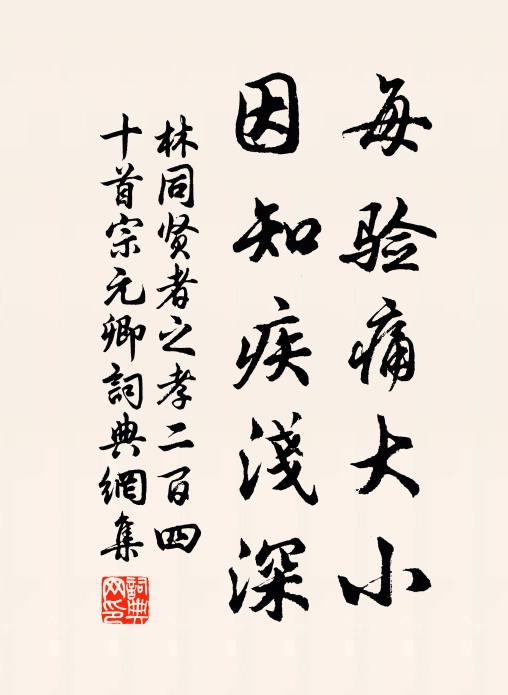 每验痛大小
因知疾淺深
林同贤者之孝二百四
十首宗元卿詞典網集
詞典网印